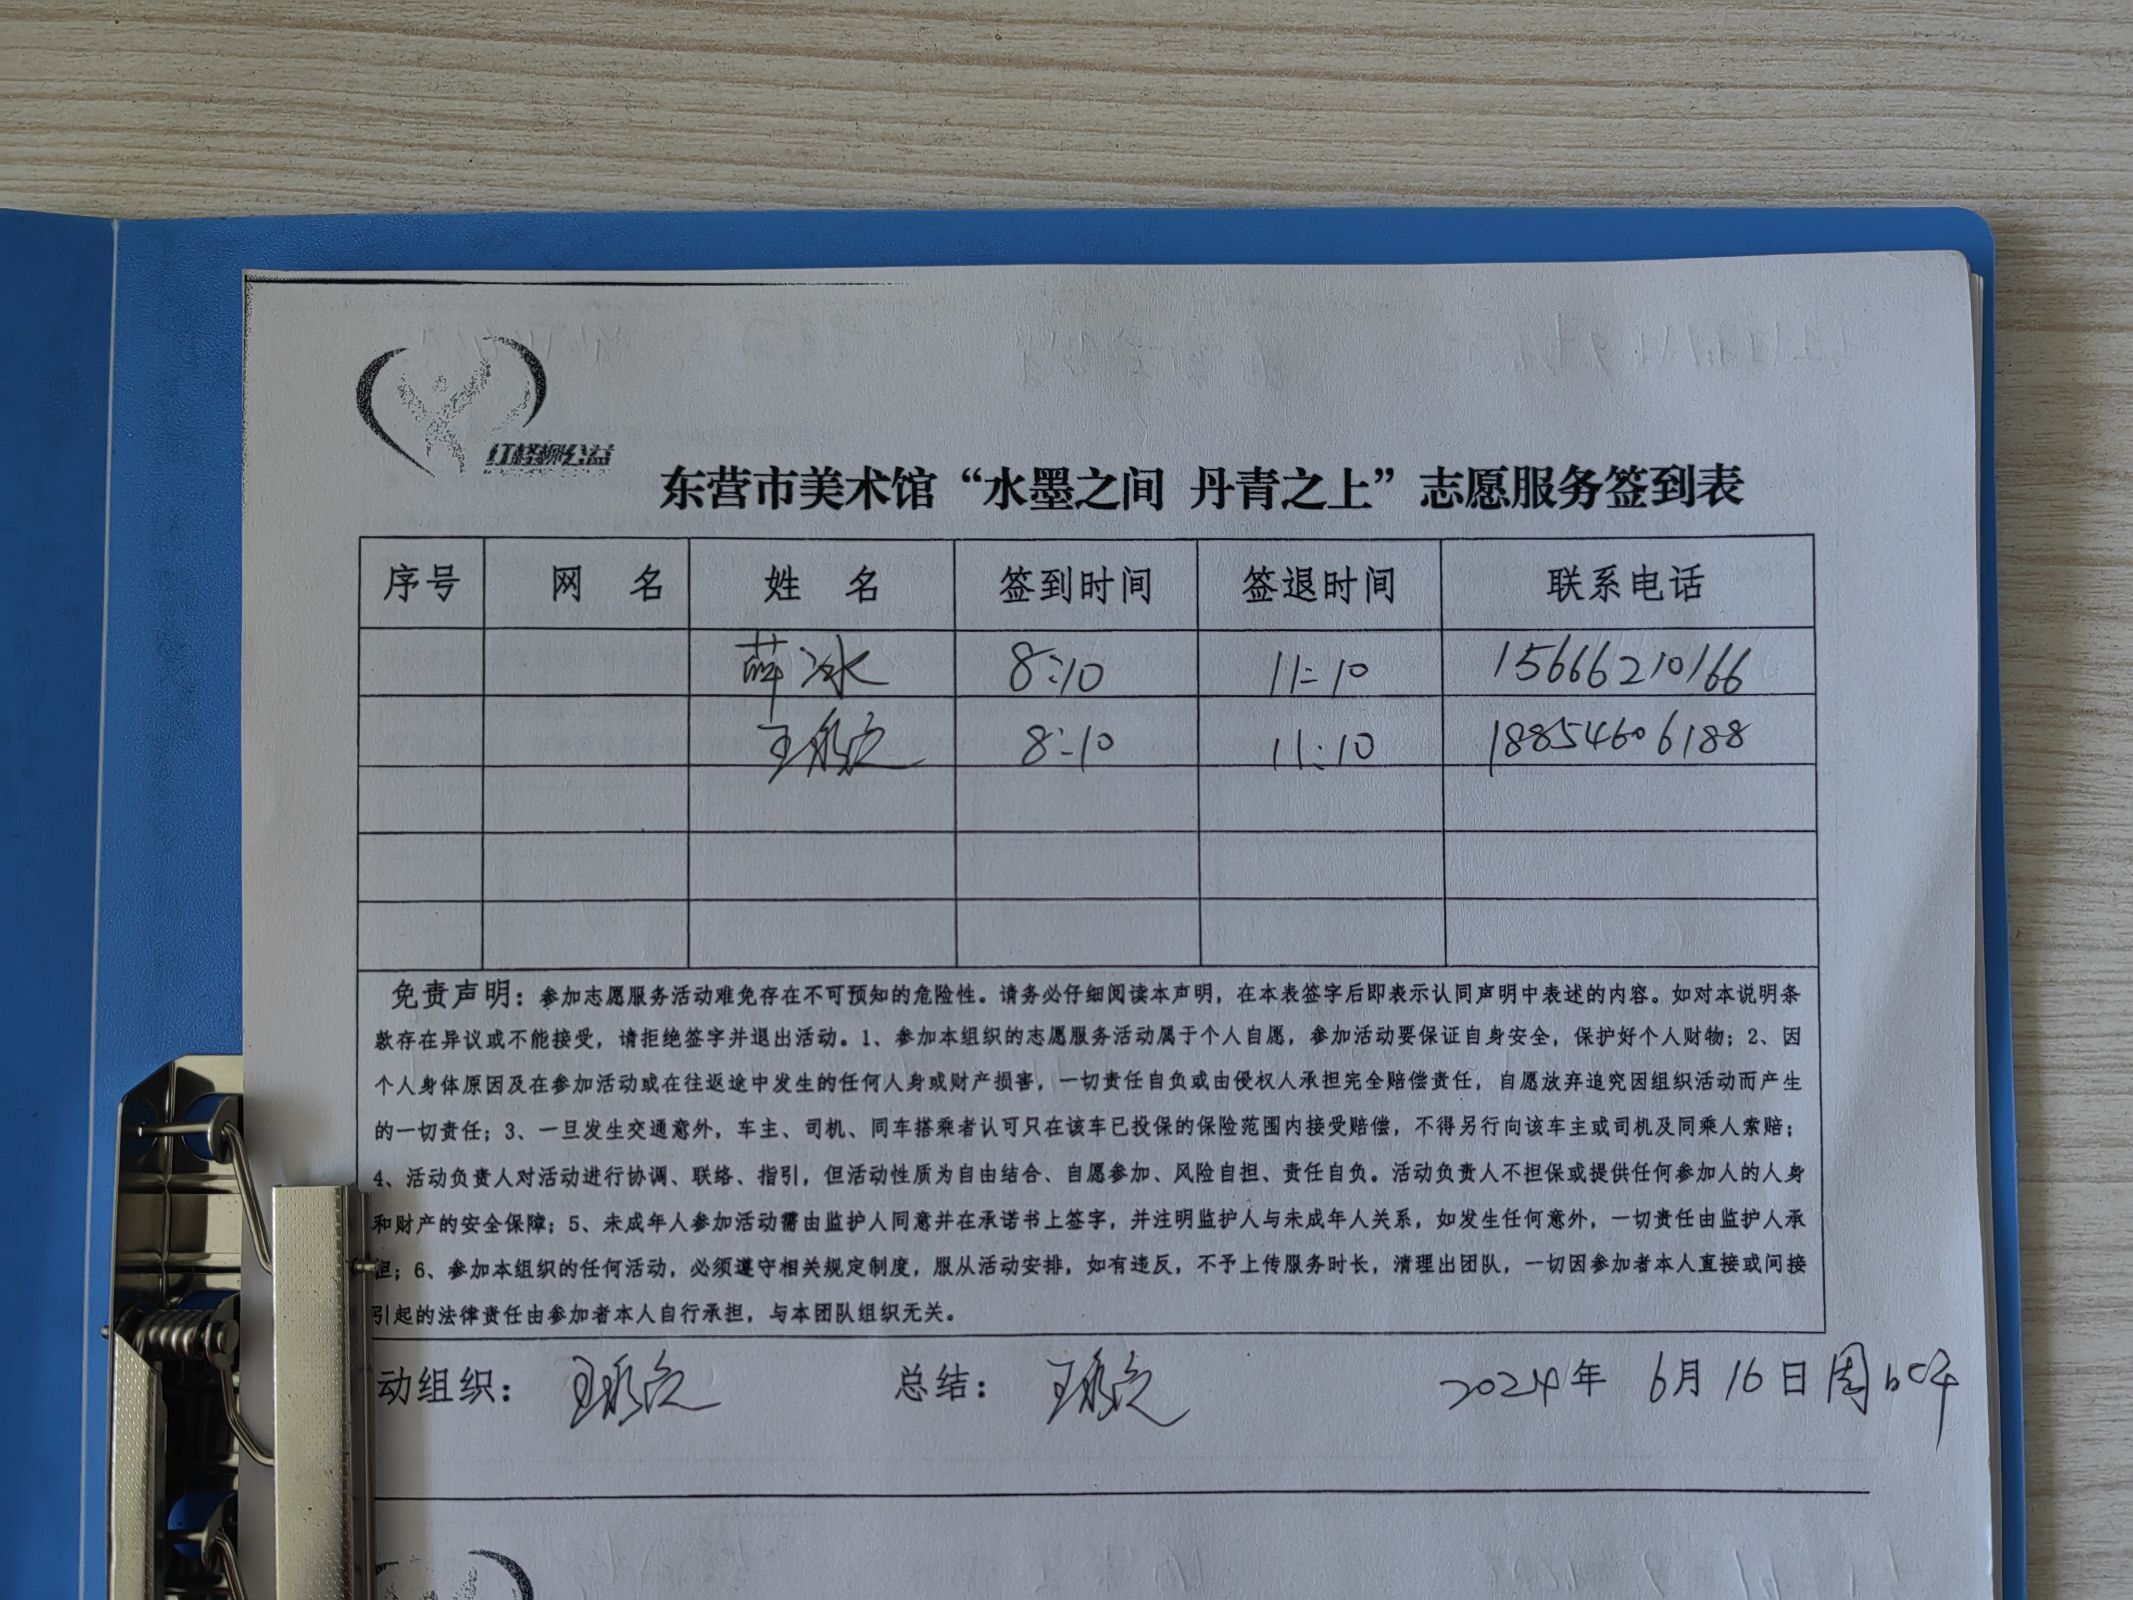 红柽柳公益
东营市美术馆“水墨之间 丹青之上”志愿服务签到表
序号 网 名 姓 名 签到时间 签退时间 联系电话
薛冰 8:10 11:10 15666210166
王 8:10 11:10 18854606188
免责声明：参加志愿服务活动难免存在不可预知的危险性。请务必仔细阅读本声明，在本表签字后即表示认同声明中表述的内容。如对本说明条
款存在异议或不能接受，请拒绝签字并退出活动。1、参加本组织的志愿服务活动属于个人自愿，参加活动要保证自身安全，保护好个人财物；2、因
个人身体原因及在参加活动或在往返途中发生的任何人身或财产损害，一切责任自负或由侵权人承担完全赔偿责任，自愿放弃追究因组织活动而产生
的一切责任；3、一旦发生交通意外，车主、司机、同车搭乘者认可只在该车已投保的保险范围内接受赔偿，不得另行向该车主或司机及同乘人索赔；
4、活动负责人对活动进行协调、联络、指引，但活动性质为自由结合、自愿参加、风险自担、责任自负。活动负责人不担保或提供任何参加人的人身
和财产的安全保障；5、未成年人参加活动需由监护人同意并在承诺书上签字，并注明监护人与未成年人关系，如发生任何意外，一切责任由监护人承
担；6、参加本组织的任何活动，必须遵守相关规定制度，服从活动安排，如有违反，不予上传服务时长，清理出团队，一切因参加者本人直接或间接
引起的法律责任由参加者本人自行承担，与本团队组织无关。
动组织： 王 总结： 王 2024年 6月 16日 周